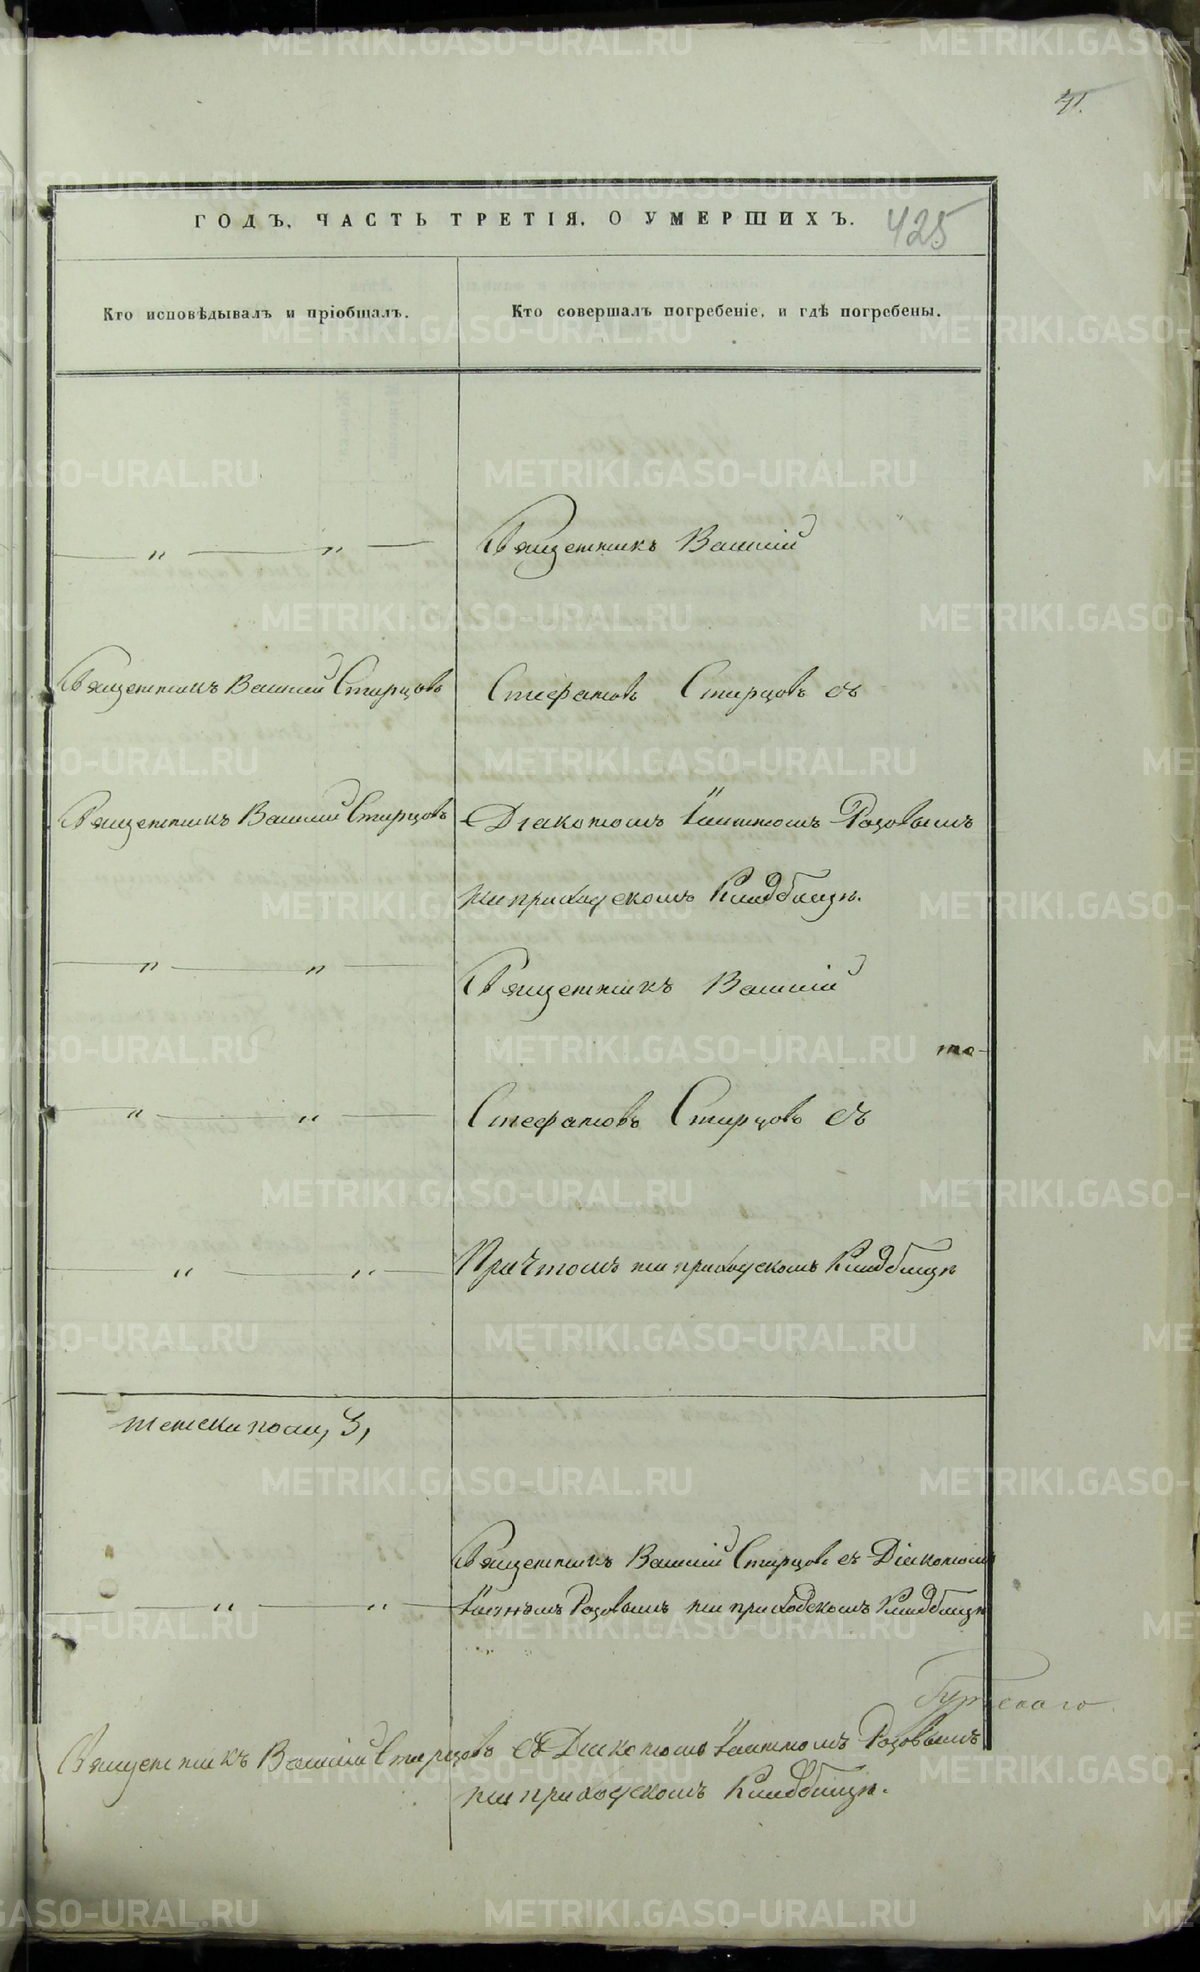 41.
ГОДЪ, ЧАСТЬ ТРЕТІЯ, О УМЕРШИХЪ.
425
Кто исповѣдывалъ и пріобщалъ.
Кто совершалъ погребеніе, и гдѣ погребены.
— „ — „ —
Священникъ Василій
Священникъ Василій Стирцовъ
Стефановъ Стирцовъ съ
Священникъ Василій Стирцовъ
Діакономъ Іоанномъ Розовымъ
на приходскомъ Кладбищѣ.
— „ — „ —
Священникъ Василій
— „ — „ —
Стефановъ Стирцовъ съ
— „ — „ —
Причтомъ на приходскомъ Кладбищѣ
женска пола, 3,
Священникъ Василій Стирцовъ съ Діакономъ
— „ — „ —
Іоанномъ Розовымъ на приходскомъ Кладбищѣ
Священникъ Василій Стирцовъ съ Діакономъ Іоанномъ Розовымъ
на приходскомъ Кладбищѣ.
METRIKI.GASO-URAL.RU